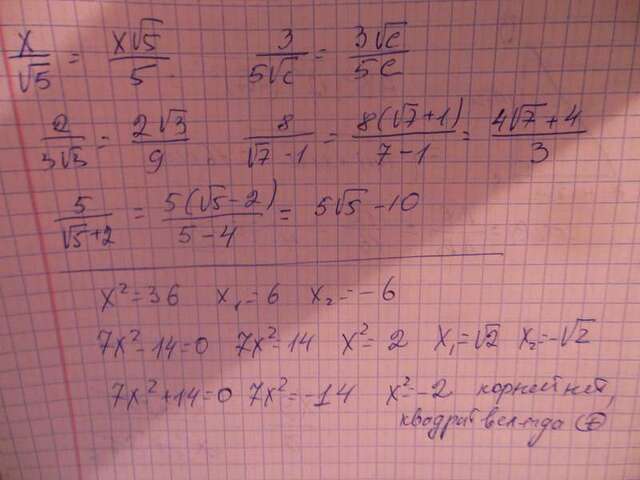 x/√5 = x√5/5   3/5√c = 3√c/5c
2/3√3 = 2√3/9   8/√7-1 = 8(√7+1)/7-1 = 4√7+4/3
5/√5+2 = 5(√5-2)/5-4 = 5√5-10
x²=36   x₁=6   x₂=-6
7x²-14=0   7x²=14   x²=2   x₁=√2   x₂=-√2
7x²+14=0   7x²=-14   x²=-2   корней нет,
квадрат всегда (+)